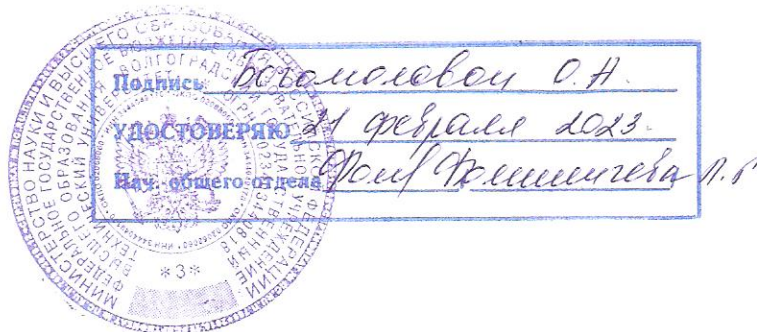 Подпись Богомоловой О.А.
УДОСТОВЕРЯЮ 21 февраля 2023.
Нач. общего отдела
МИНИСТЕРСТВО НАУКИ И ВЫСШЕГО ОБРАЗОВАНИЯ РОССИЙСКОЙ ФЕДЕРАЦИИ
ФЕДЕРАЛЬНОЕ ГОСУДАРСТВЕННОЕ БЮДЖЕТНОЕ ОБРАЗОВАТЕЛЬНОЕ УЧРЕЖДЕНИЕ
ВЫСШЕГО ОБРАЗОВАНИЯ ВОЛГОГРАДСКИЙ ГОСУДАРСТВЕННЫЙ
ТЕХНИЧЕСКИЙ УНИВЕРСИТЕТ
*3*